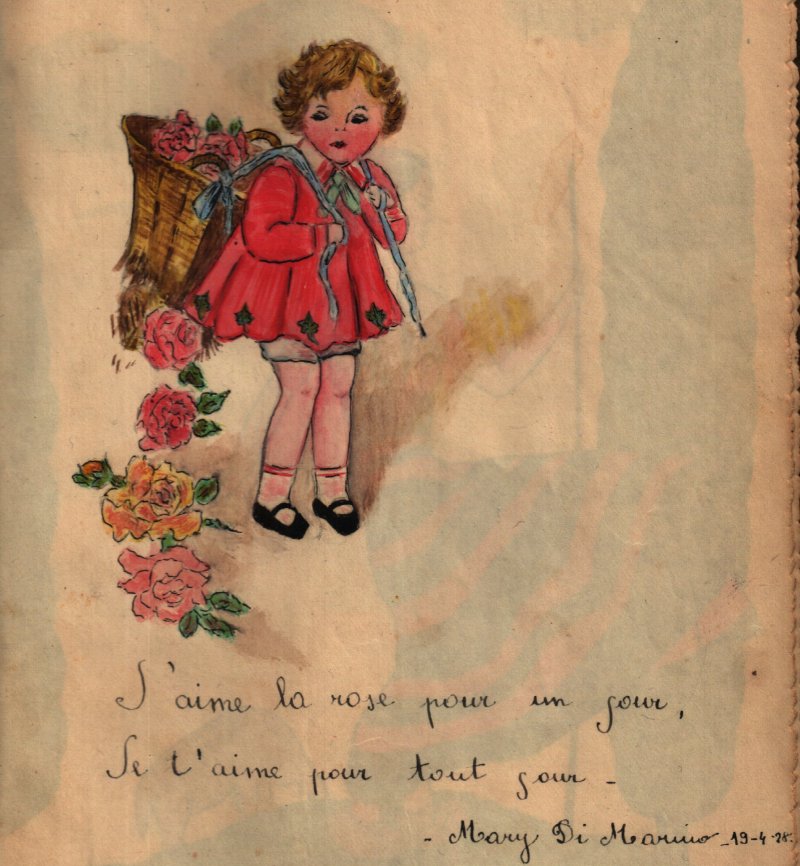 J'aime la rose pour un jour,
Je t'aime pour tout jour -
- Mary Di Marino - 19-4-28.